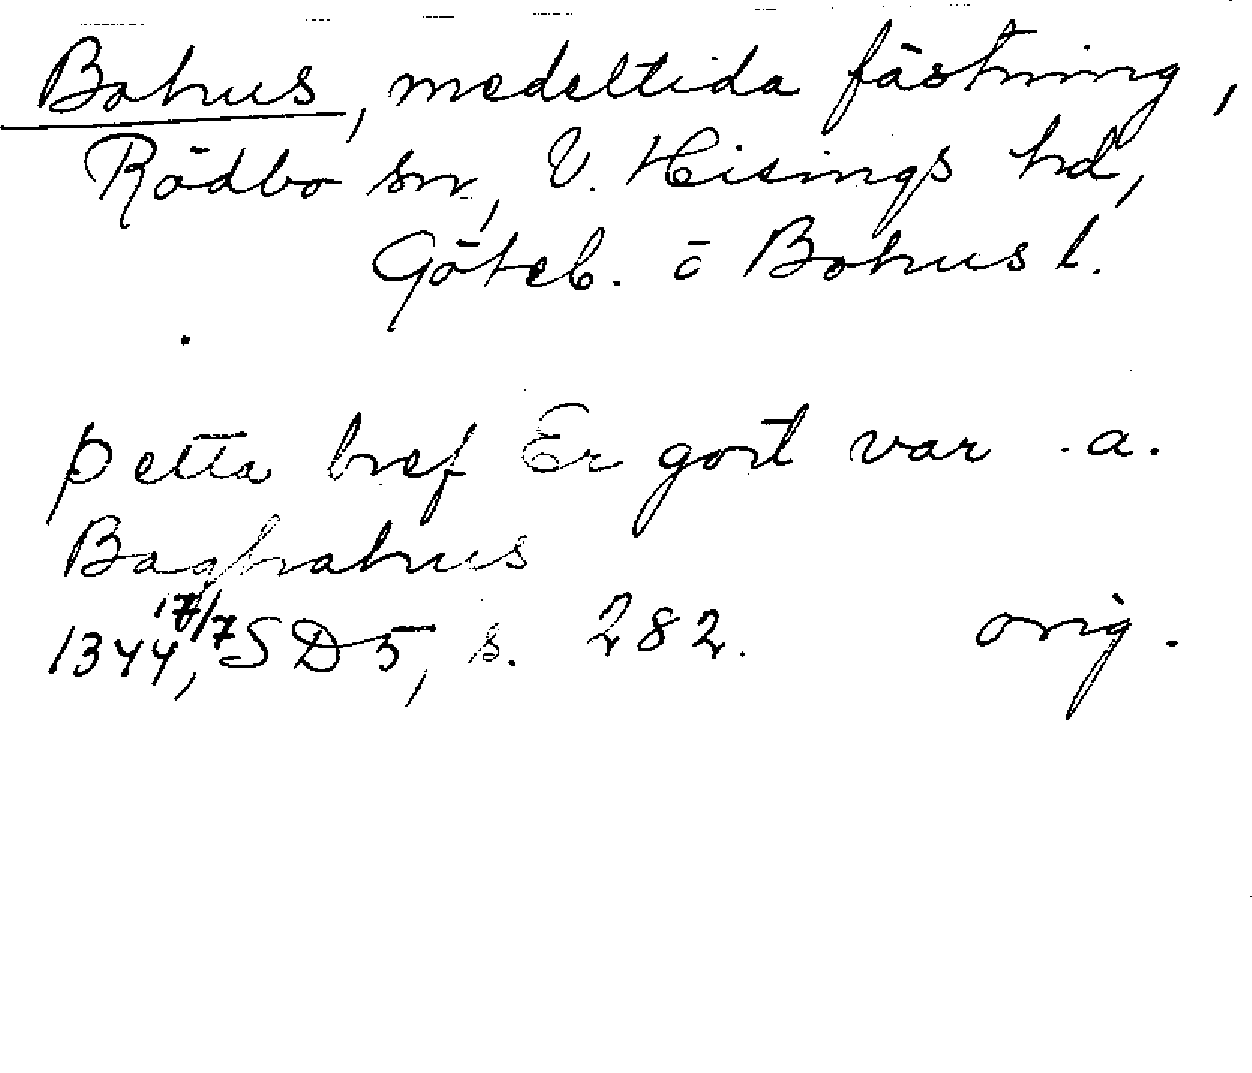 Bohus, medeltida fästning,
Rödbo sn, V. Hisings hd,
Göteb. o Bohus l.
þetta bref Er gort var .a.
Baghahus
1344, 17/7 SD5, s. 282. orig.